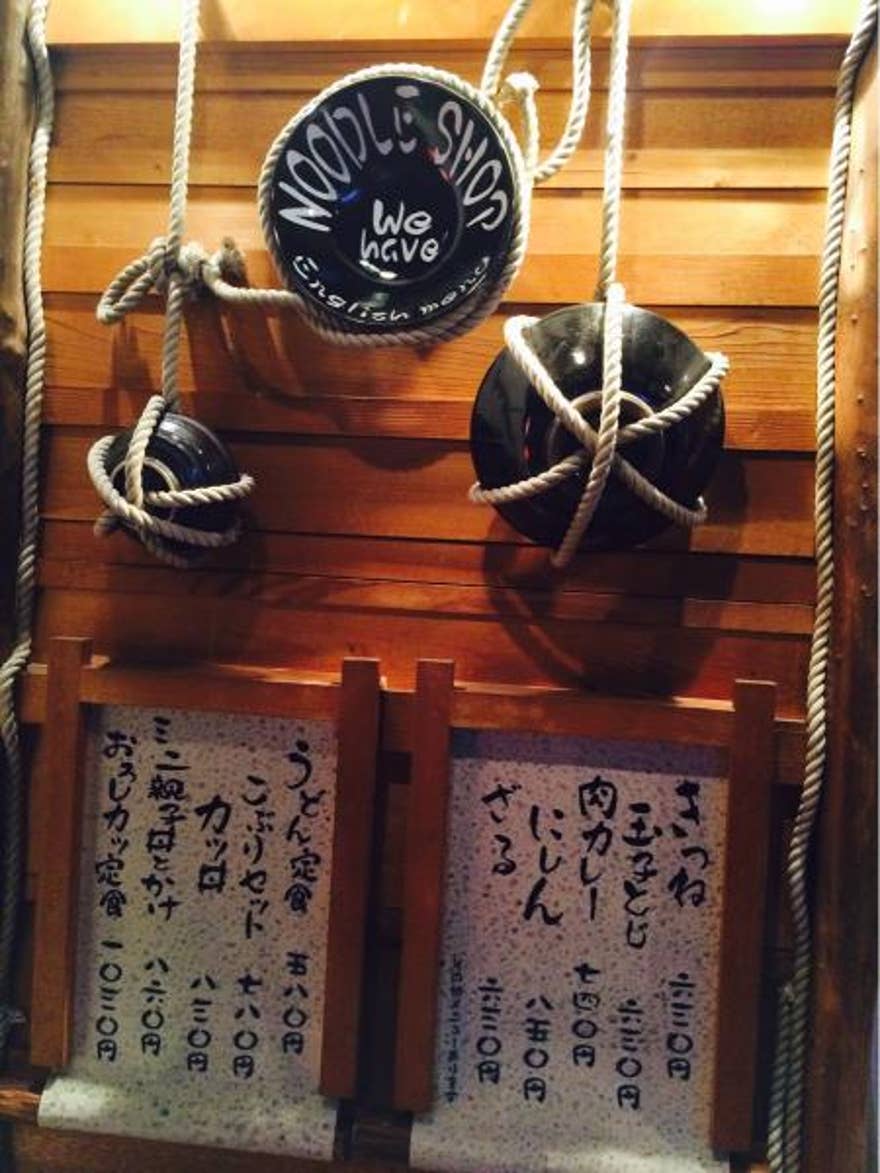 NOODLE SHOP
We
have
English menu
きつね 六三〇円
玉子とじ 六三〇円
肉カレー 七四〇円
にしん 八五〇円
ざる 六三〇円
うどん定食 五八〇円
こぶりセット 七八〇円
カツ丼 八三〇円
ミニ親子丼とかけ 八六〇円
おろしカツ定食 一〇三〇円